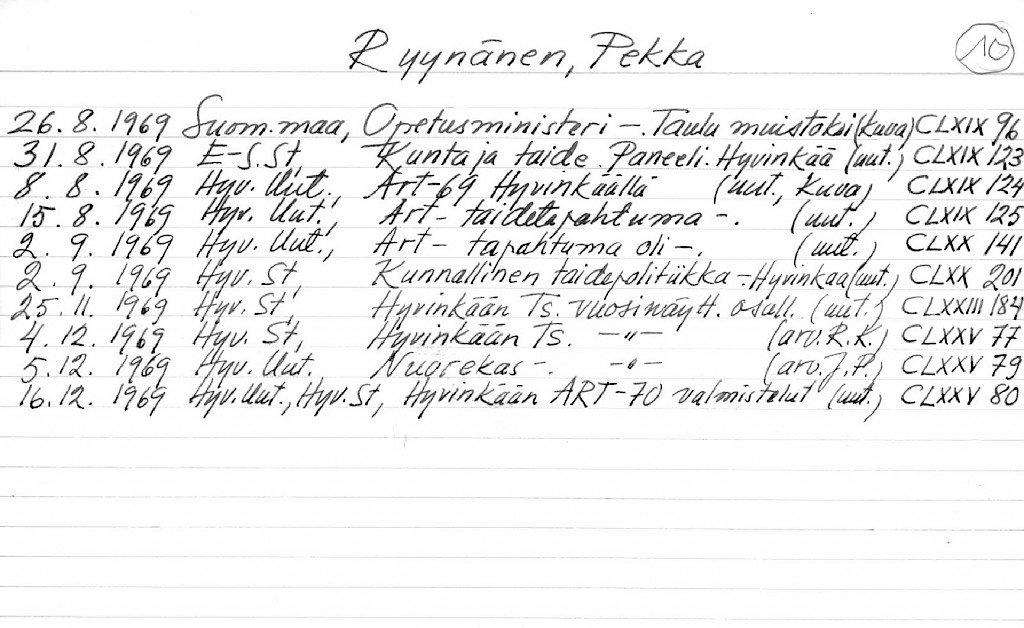 Ryynänen, Pekka
10
26.8.1969 Suom.maa, Opetusministeri -. Taulu muistoksi (kuva) CLXIX 96
31.8.1969 E-S.St, Kunta ja taide. Paneeli. Hyvinkää (uut.) CLXIX 123
8.8.1969 Hyv. Uut., Art-69 Hyvinkäällä (uut., kuva) CLXIX 124
15.8.1969 Hyv. Uut., Art-taidetapahtuma -. (uut.) CLXIX 125
2.9.1969 Hyv. Uut., Art-tapahtuma oli -. (uut.) CLXX 141
2.9.1969 Hyv. St, Kunnallinen taidepolitiikka - Hyvinkää (uut.) CLXX 201
25.11.1969 Hyv. St, Hyvinkään Ts. vuosinäytt. osall. (uut.) CLXXIII 184
4.12.1969 Hyv. St, Hyvinkään Ts. -"- (arv. R.K.) CLXXV 77
5.12.1969 Hyv. Uut. Nuorekas -. -"- (arv. J.P.) CLXXV 79
16.12.1969 Hyv. Uut., Hyv. St, Hyvinkään ART-70 valmistelut (uut.) CLXXV 80